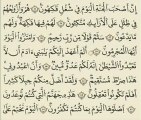 إِنَّ أَصْحَٰبَ ٱلْجَنَّةِ ٱلْيَوْمَ فِي شُغُلٍ فَٰكِهُونَ ۝ هُمْ وَأَزْوَٰجُهُمْ
فِي ظِلَٰلٍ عَلَى ٱلْأَرَآئِكِ مُتَّكِـُٔونَ ۝ لَهُمْ فِيهَا فَٰكِهَةٌ وَلَهُم
مَّا يَدَّعُونَ ۝ سَلَٰمٌ قَوْلًا مِّن رَّبٍّ رَّحِيمٍ ۝ وَٱمْتَٰزُوا۟ ٱلْيَوْمَ
أَيُّهَا ٱلْمُجْرِمُونَ ۝ أَلَمْ أَعْهَدْ إِلَيْكُمْ يَٰبَنِيٓ ءَادَمَ أَن لَّا
تَعْبُدُوا۟ ٱلشَّيْطَٰنَ إِنَّهُۥ لَكُمْ عَدُوٌّ مُّبِينٌ ۝ وَأَنِ ٱعْبُدُونِي
هَٰذَا صِرَٰطٌ مُّسْتَقِيمٌ ۝ وَلَقَدْ أَضَلَّ مِنكُمْ جِبِلًّا كَثِيرًا
أَفَلَمْ تَكُونُوا۟ تَعْقِلُونَ ۝ هَٰذِهِۦ جَهَنَّمُ ٱلَّتِي كُنتُمْ تُوعَدُونَ
۝ ٱصْلَوْهَا ٱلْيَوْمَ بِمَا كُنتُمْ تَكْفُرُونَ ۝ ٱلْيَوْمَ نَخْتِمُ عَلَىٰٓ